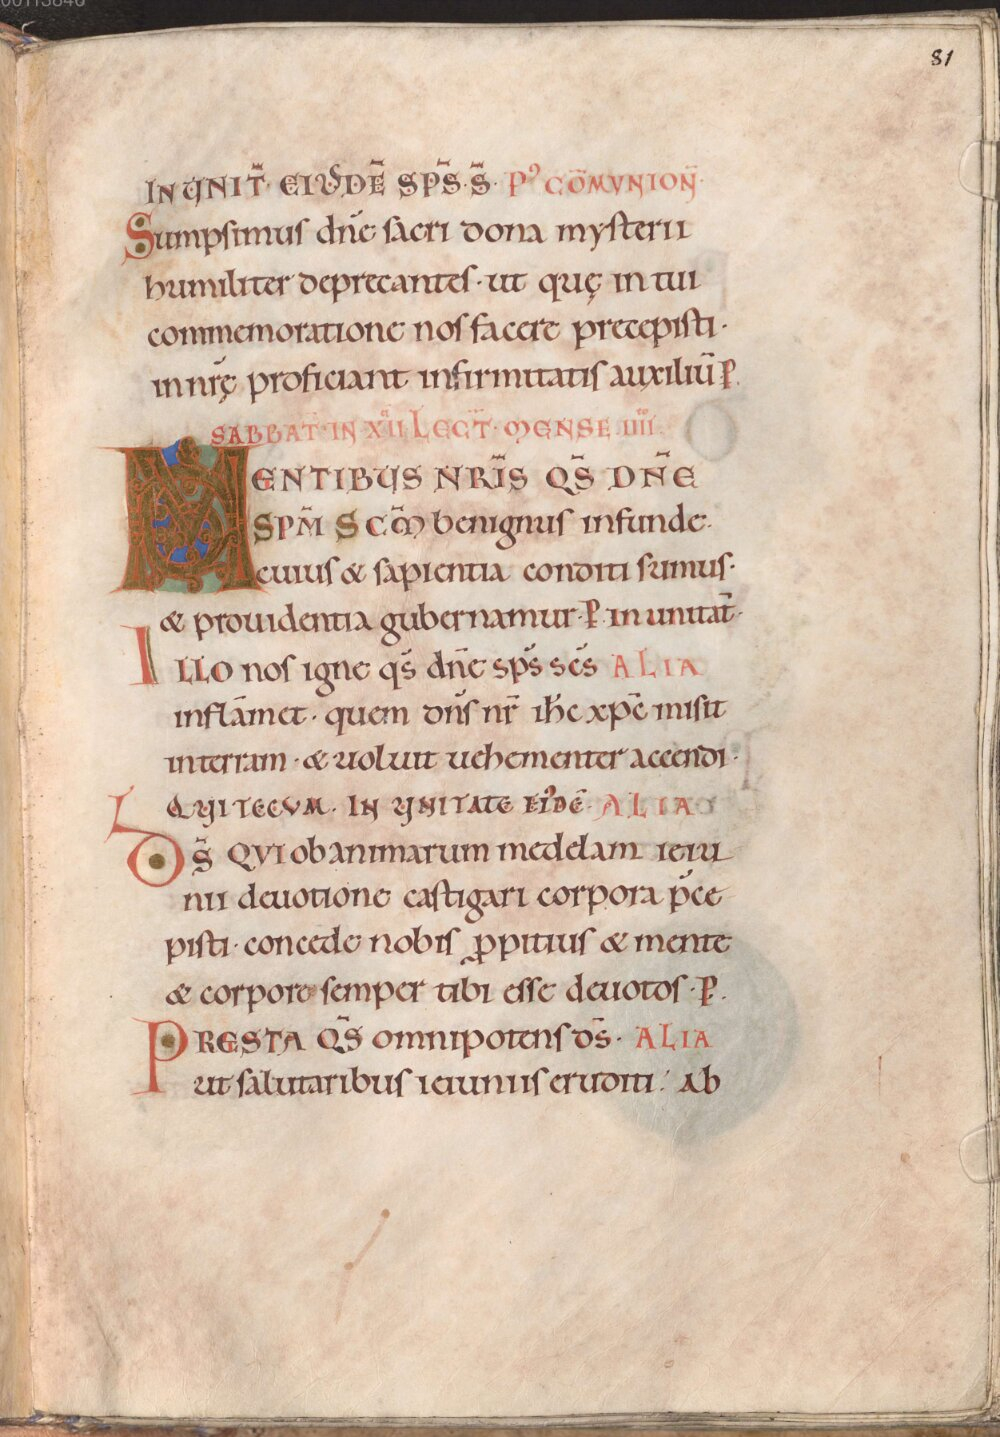 00113846
81
IN UNIT̄ EIUSDĒ SP̄S·S̄· P' COM̄VNION̄·
Sumpsimus dn̄e sacri dona mysterii
humiliter deprecantes· ut quę in tui
commemoratione nos facere precepisti·
in nr̄ę proficiant infirmitatis auxiliū P.
SABBAT· IN XII LECT̄· MENSE IIII·
MENTIBUS NR̄IS QS̄ DN̄E
SPM̄ SCM̄ benignus infunde·
cuius & sapientia conditi sumus·
& prouidentia gubernamur· P. in unitat̄·
ILLO nos igne qs̄ dn̄e sp̄s sc̄s ALIA
inflāmet· quem dn̄s nr̄ ih̄c xp̄c misit
in terram· & uoluit uehementer accendi·
QUI TECVM· IN UNITATE EI'DĒ ALIA
DS̄ QVI ob animarum medelam ieiu
nii deuotione castigari corpora p̄ce
pisti· concede nobis ꝓpitius & mente
& corpore semper tibi esse deuotos· P.
PRESTA QS̄ omnipotens ds̄· ALIA
ut salutaribus ieiuniis eruditi· ab